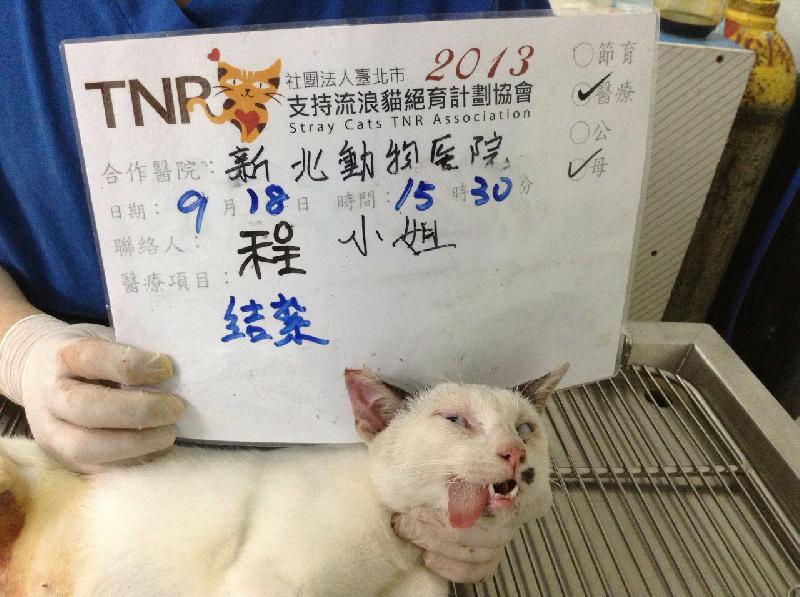 TNR 社團法人臺北市 2013
支持流浪貓絕育計劃協會
Stray Cats TNR Association
○節育
✓醫療
○公
✓母
合作醫院：新北動物医院
日期：9月18日 時間：15時30分
聯絡人：程小姐
醫療項目：
結紮